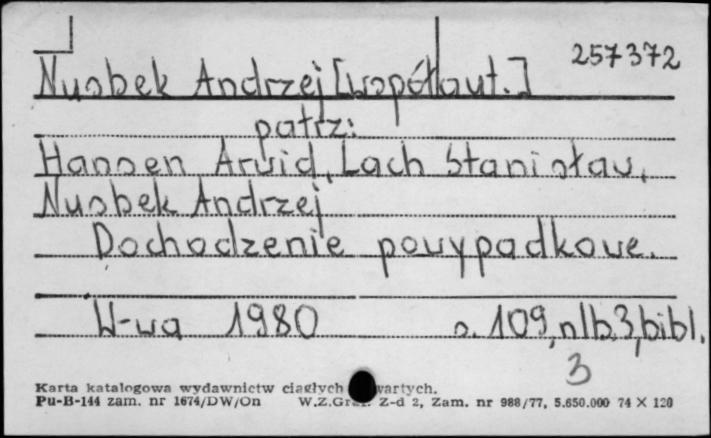 257372
Nusbek Andrzej [współaut.]
patrz:
Hansen Arvid, Lach Stanisław,
Nusbek Andrzej
Dochodzenie powypadkowe.
W-wa 1980 s. 109, nlb. 3, bibl.
3
Karta katalogowa wydawnictw ciągłych wartych.
Pu-B-144 zam. nr 1674/DW/On W.Z.Graf. Z-d 2, Zam. nr 988/77, 5.650.000 74 X 120